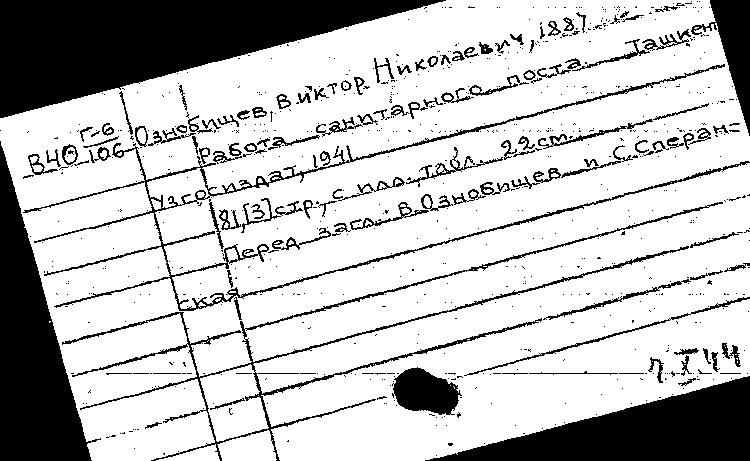 В40 Г-6/106 Ознобищев, Виктор Николаевич, 1887
Работа санитарного поста. Ташкен
Узгосиздат, 1941
81,[3]стр., с илл., табл. 22см.
Перед загл.: В.Ознобищев и С.Сперан-
ская
X.44